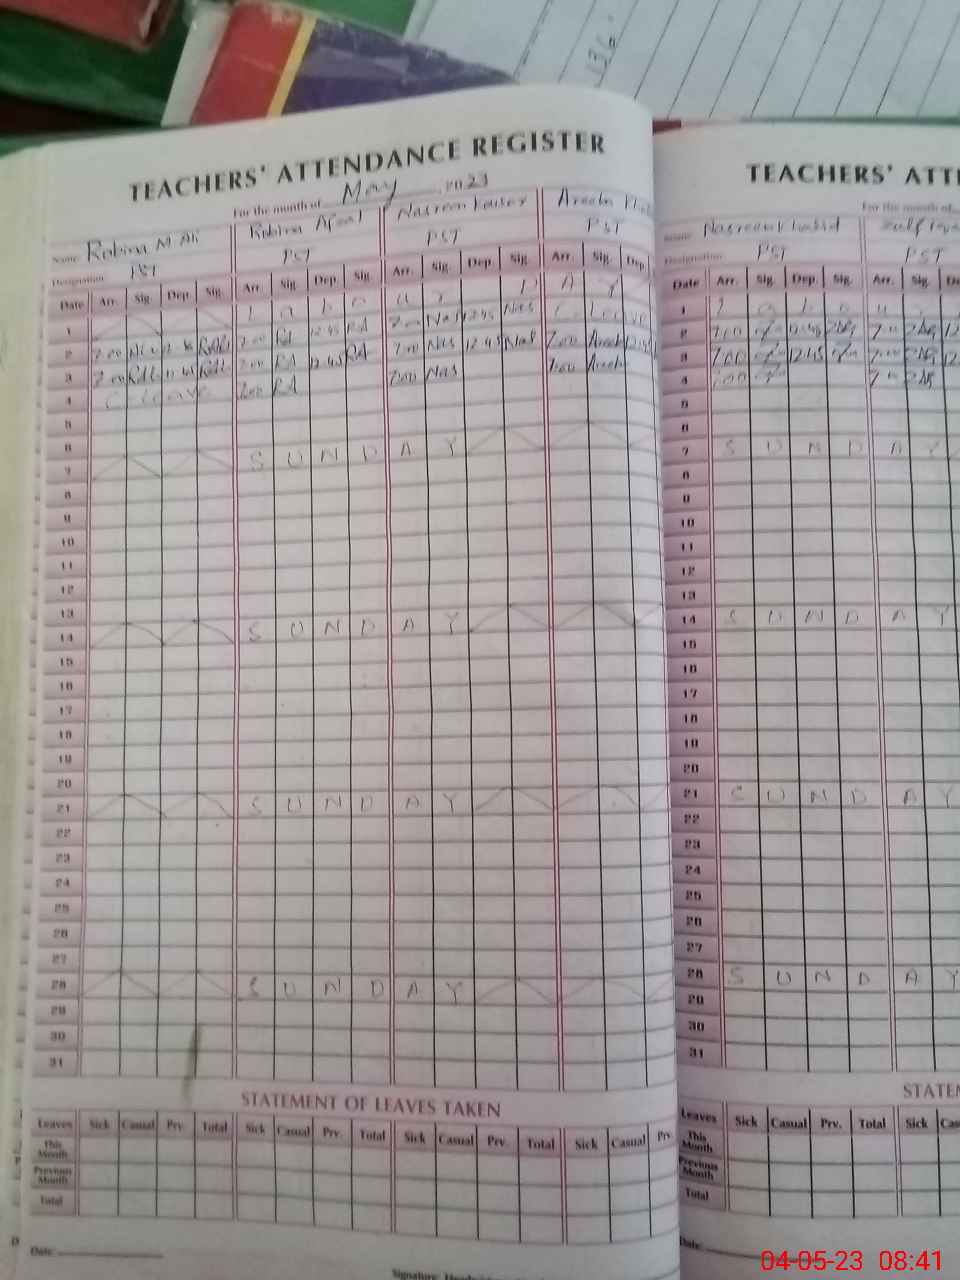 136
TEACHERS' ATTENDANCE REGISTER
For the month of May 2023
Name Robina M Ali Robina Afzal Nasreen Kausar Areeba
Designation PST PST PST PST
Date Arr. Sig. Dep. Sig. Arr. Sig. Dep. Sig. Arr. Sig. Dep. Sig. Arr. Sig. Dep.
1 L a b o u r D A Y
2 7:00 12:45 7:00 RA 12:45 RA 7:00 Nas 12:45 Nas C. Leave
3 7:00 12:45 7:00 RA 12:45 RA 7:00 Nas 12:45 Nas 7:00 Areeb 12:45
4 C. Leave 7:00 RA 7:00 Nas 7:00 Areeb
5
6
7 S U N D A Y
8
9
10
11
12
13
14 S U N D A Y
15
16
17
18
19
20
21 S U N D A Y
22
23
24
25
26
27
28 S U N D A Y
29
30
31
STATEMENT OF LEAVES TAKEN
Leaves Sick Casual Prv. Total Sick Casual Prv. Total Sick Casual Prv. Total Sick Casual Prv.
This Month
Previous Month
Total
Date
Signature
TEACHERS' ATTE
For the month of
Name Nasreen Khalid
Designation PST PST
Date Arr. Sig. Dep. Sig. Arr. Sig. De
1 L a b o u
2 7:00 12:45 7:00 12
3 7:00 12:45 7:00 12
4 7:00 7:00
5
6
7 S U N D A Y
8
9
10
11
12
13
14 S U N D A Y
15
16
17
18
19
20
21 S U N D A Y
22
23
24
25
26
27
28 S U N D A Y
29
30
31
STATEM
Leaves Sick Casual Prv. Total Sick Cas
This Month
Previous Month
Total
Date
04-05-23 08:41